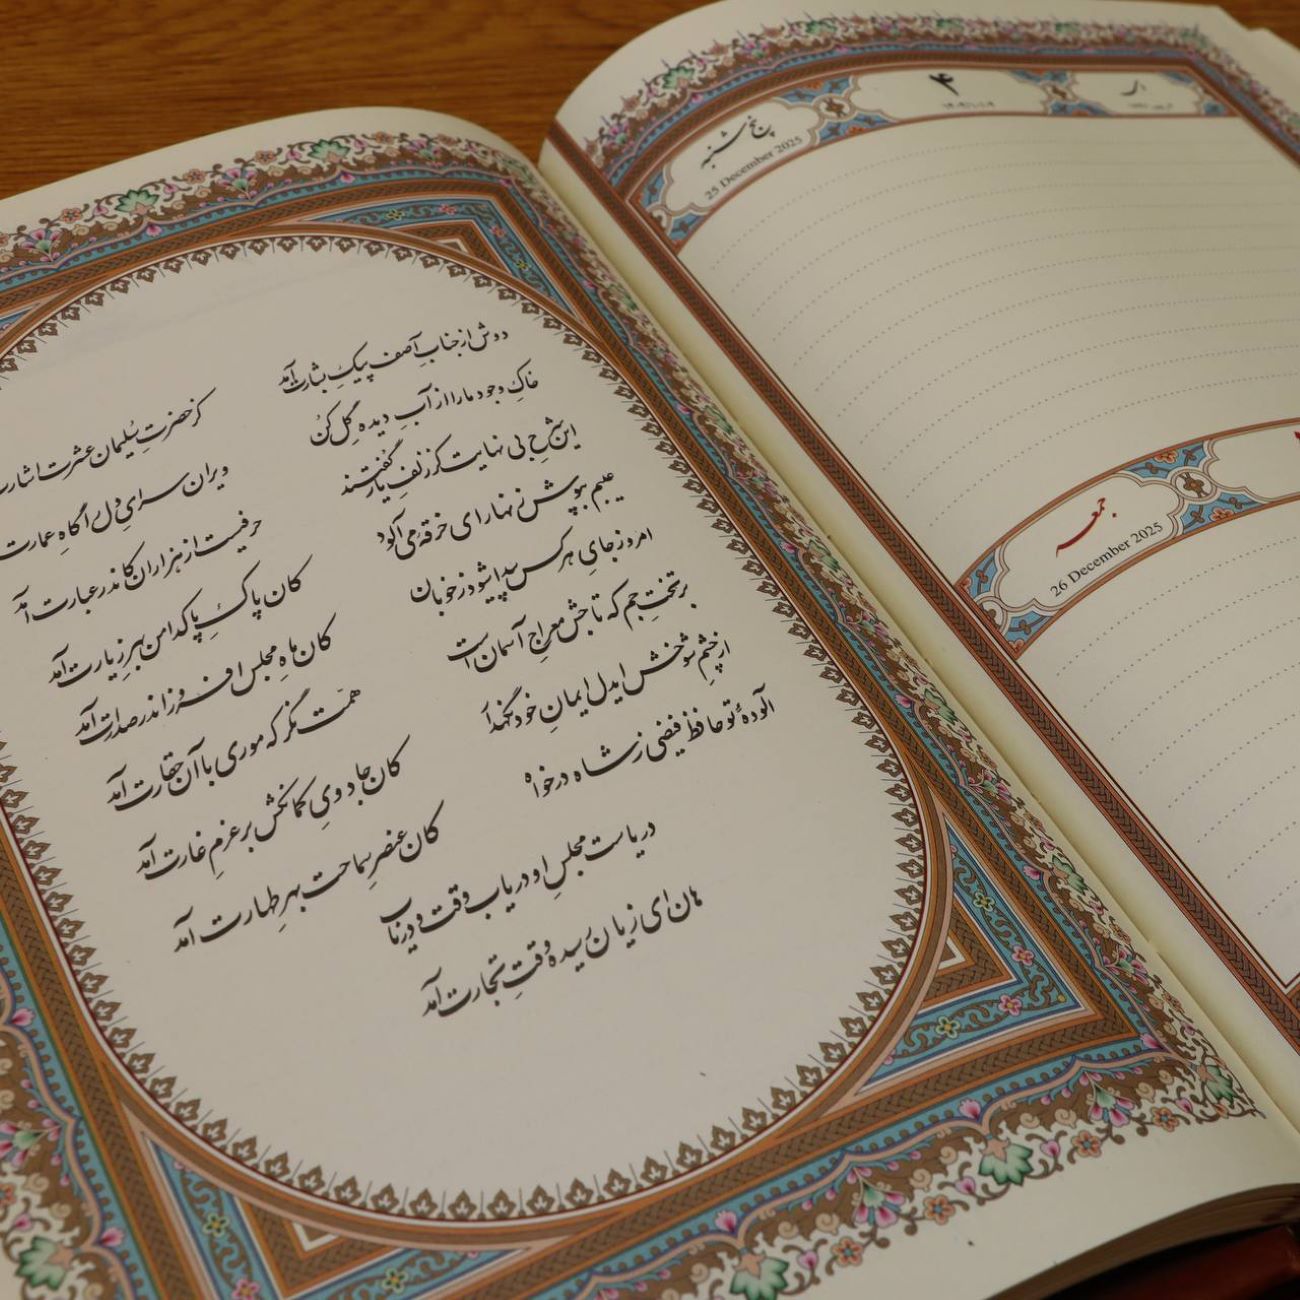 دوش از جنابِ آصف پیکِ بشارت آمد
کز حضرتِ سُلیمان عشرت اشارت
خاکِ وجود ما را از آبِ دیده گِل کُن
ویران سرایِ دل را گاهِ عمارت
این شرحِ بی نهایت کز زلفِ یار گفتند
حرفیست از هزاران کاندر عبارت آمد
عیبم بپوش زنهار ای خرقه می آلود
کان پاکِ پاکدامن بهرِ زیارت آمد
امروز جایِ هر کس پیدا شود ز خوبان
کان ماهِ مجلس افروز اندر صدارت آمد
بر تختِ جم که تاجش معراجِ آسمان است
همّت نگر که موری با آن حقارت آمد
از چشمِ شوخش ایدل ایمانِ خود نگهدار
کان جادویِ کمانکش بر عزمِ غارت آمد
آلودهٔ تو حافظ فیضی ز شاه درخواه
کان عنصرِ سماحت بهرِ طهارت آمد
دریاست مجلسِ او دریاب وقت و دُریاب
هان ای زیان رسیده وقتِ تجارت آمد
پنج شنبه
25 December 2025
۴
جمعه
26 December 2025